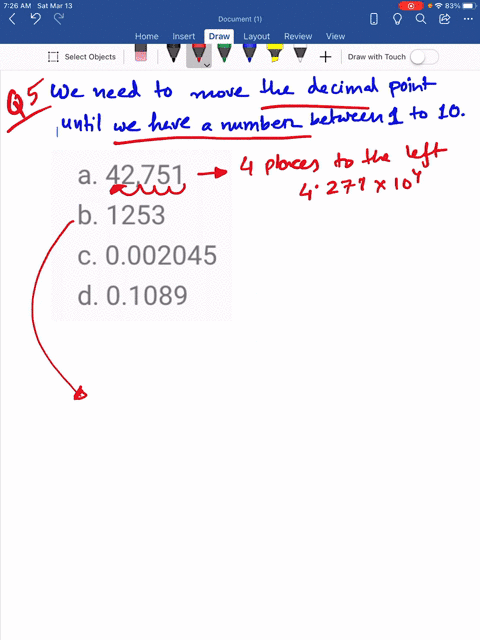 7:26 AM Sat Mar 13
83%
Document (1)
Home Insert Draw Layout Review View
Select Objects
Draw with Touch
Q5 We need to move the decimal point
until we have a number between 1 to 10.
a. 42,751 → 4 places to the left
4.277 x 10⁴
b. 1253
c. 0.002045
d. 0.1089